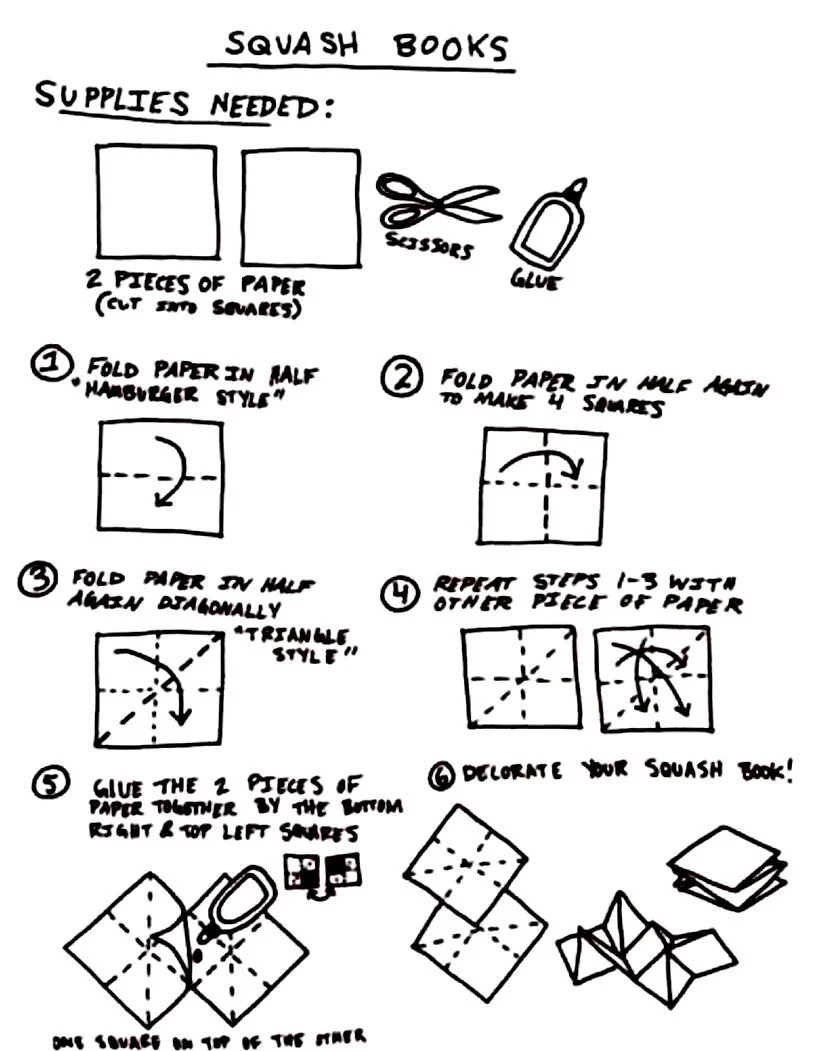 SQUASH BOOKS
SUPPLIES NEEDED:
SCISSORS
GLUE
2 PIECES OF PAPER
(CUT INTO SQUARES)
1 FOLD PAPER IN HALF
"HAMBURGER STYLE"
2 FOLD PAPER IN HALF AGAIN
TO MAKE 4 SQUARES
3 FOLD PAPER IN HALF
AGAIN DIAGONALLY
"TRIANGLE
STYLE"
4 REPEAT STEPS 1-3 WITH
OTHER PIECE OF PAPER
5 GLUE THE 2 PIECES OF
PAPER TOGETHER BY THE BOTTOM
RIGHT & TOP LEFT SQUARES
ONE SQUARE ON TOP OF THE OTHER
6 DECORATE YOUR SQUASH BOOK!